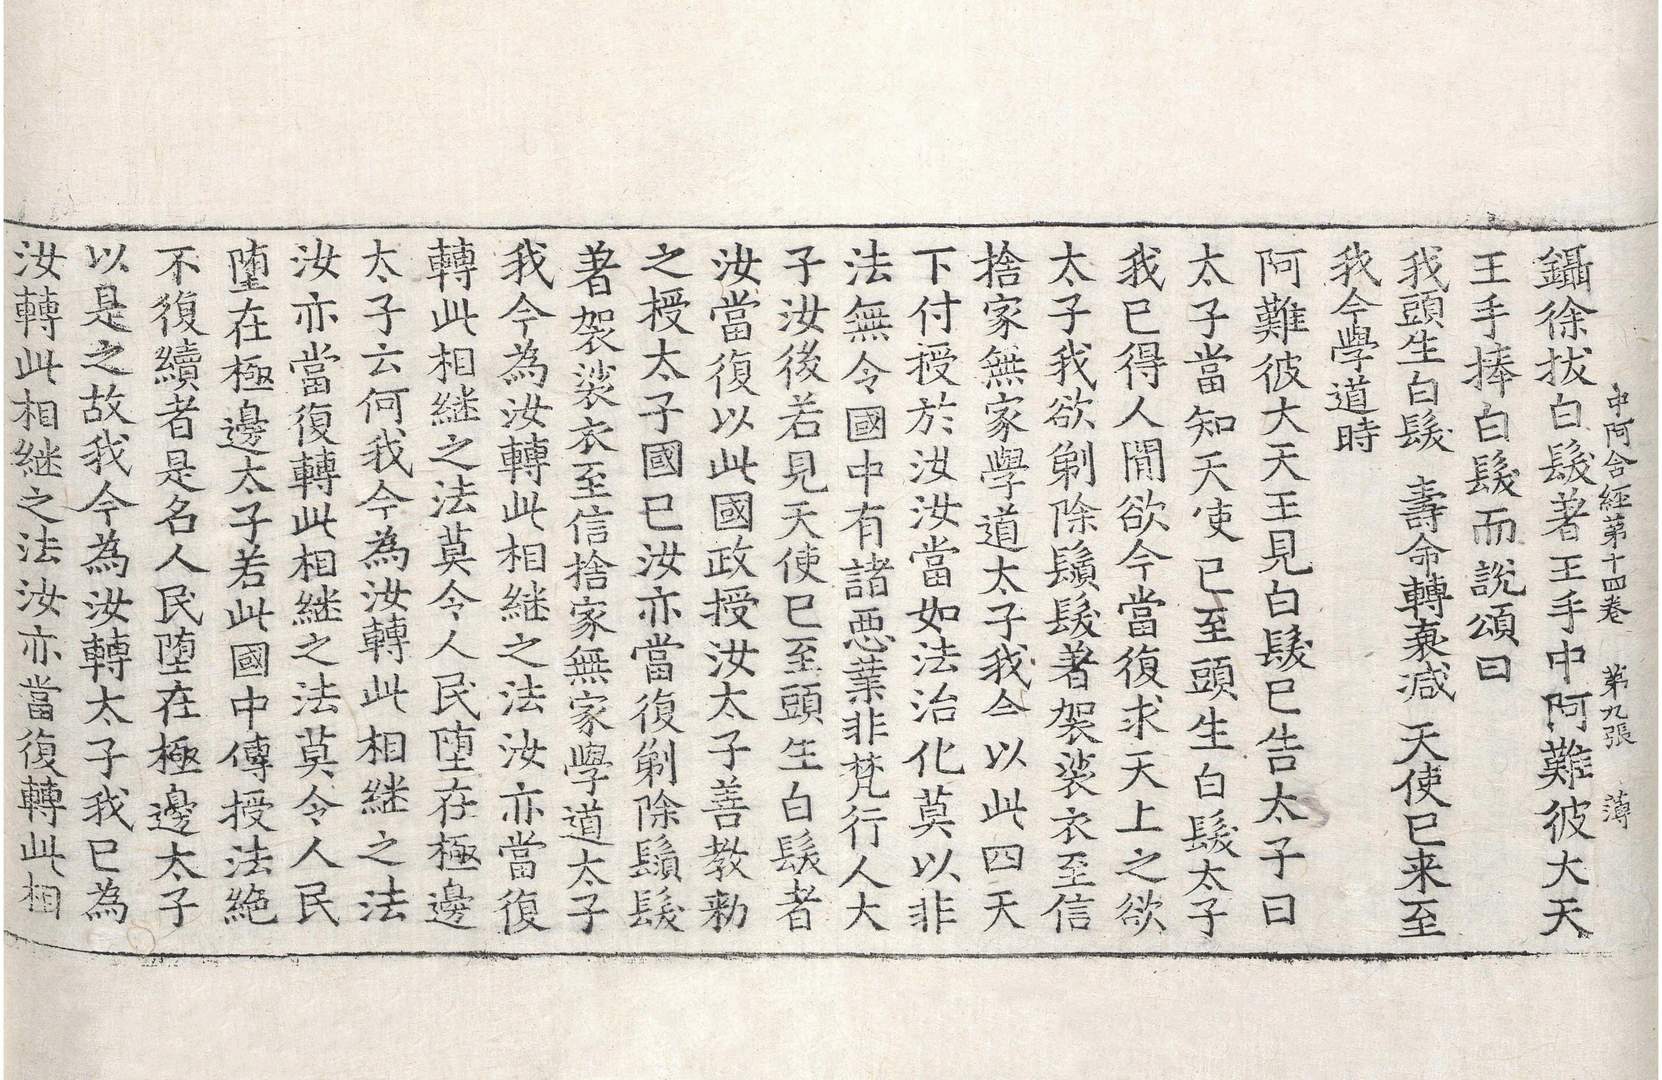 中阿含經第十四卷 第九張 薄
鑷徐拔白髮著王手中阿難彼大天
王手捧白髮而說頌曰
我頭生白髮 壽命轉衰減 天使已来至
我今學道時
阿難彼大天王見白髮已告太子曰
太子當知天使已至頭生白髮太子
我已得人間欲今當復求天上之欲
太子我欲剃除鬚髮著袈裟衣至信
捨家無家學道太子我今以此四天
下付授於汝汝當如法治化莫以非
法無令國中有諸惡業非梵行人大
子汝後若見天使已至頭生白髮者
汝當復以此國政授汝太子善教勑
之授太子國已汝亦當復剃除鬚髮
著袈裟衣至信捨家無家學道太子
我今為汝轉此相継之法汝亦當復
轉此相継之法莫令人民堕在極邊
太子云何我今為汝轉此相継之法
汝亦當復轉此相継之法莫令人民
堕在極邊太子若此國中傳授法絶
不復續者是名人民堕在極邊太子
以是之故我今為汝轉太子我已為
汝轉此相継之法汝亦當復轉此相